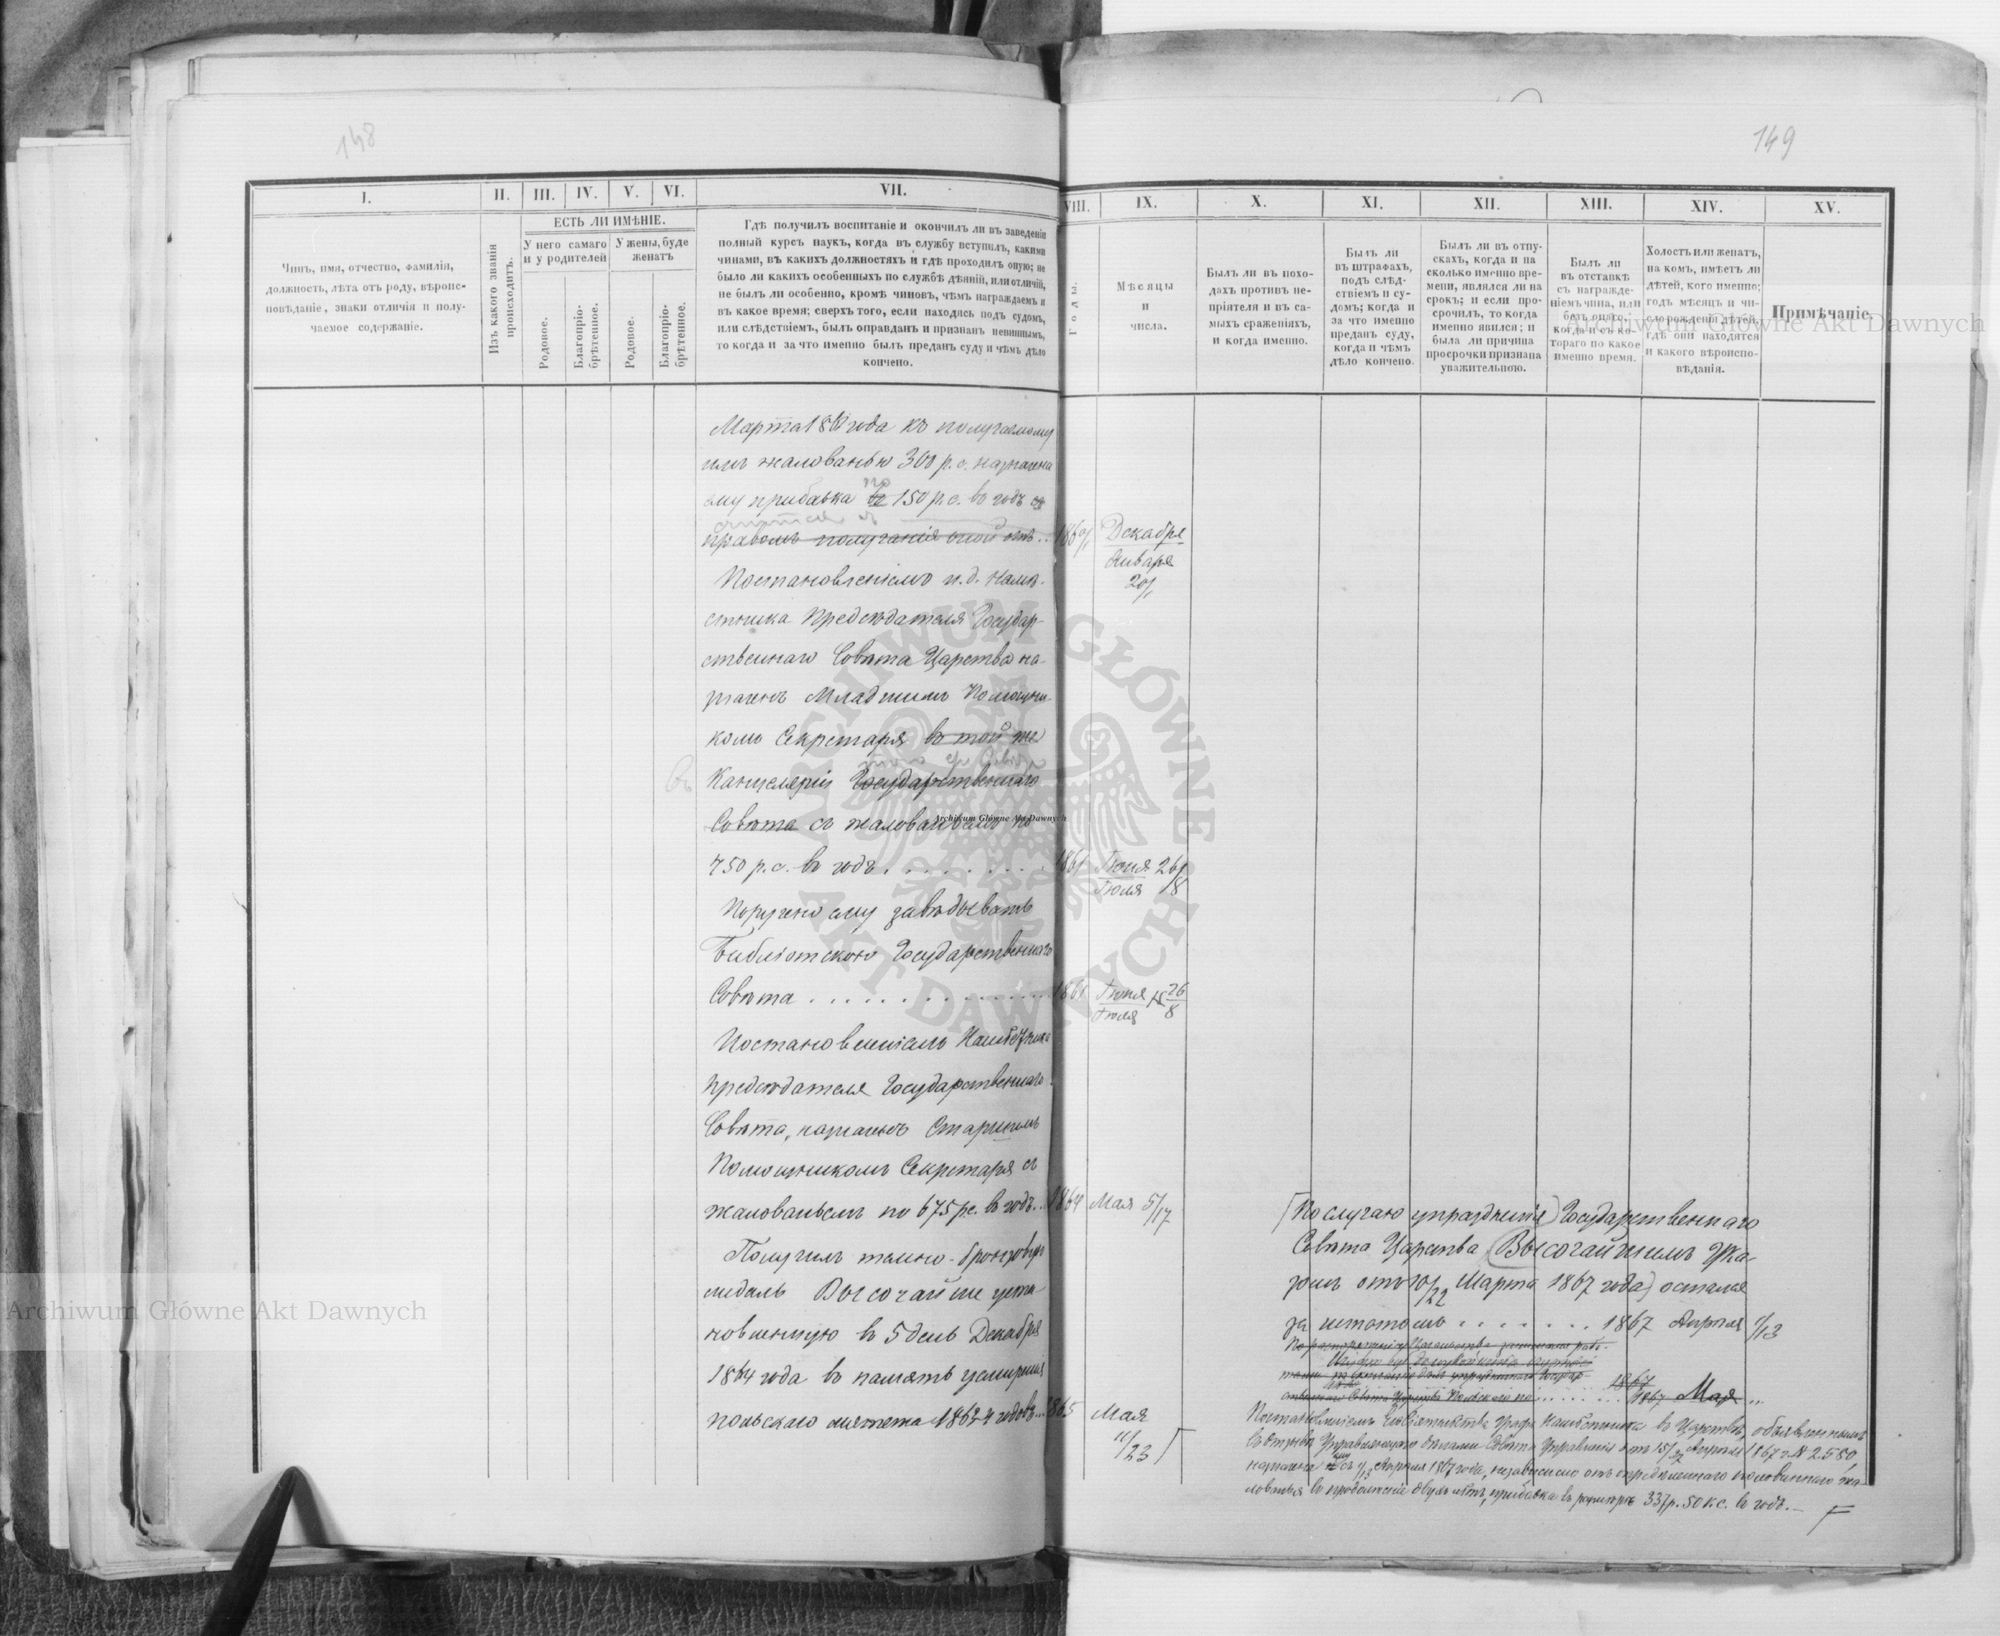 148
149
I.
II.
III.
IV.
V.
VI.
VII.
VIII.
IX.
X.
XI.
XII.
XIII.
XIV.
XV.
Чинъ, имя, отчество, фамилія,
должность, лѣта отъ роду, вѣроис-
повѣданіе, знаки отличія и полу-
чаемое содержаніе.
Изъ какого званія
происходитъ.
ЕСТЬ ЛИ ИМѢНІЕ.
У него самаго
и у родителей
У жены, буде
женатъ
Родовое.
Благопріо-
брѣтенное.
Родовое.
Благопріо-
брѣтенное.
Гдѣ получилъ воспитаніе и окончилъ ли въ заведеніи
полный курсъ наукъ, когда въ службу вступилъ, какими
чинами, въ какихъ должностяхъ и гдѣ проходилъ оную; не
было ли какихъ особенныхъ по службѣ дѣяній, или отличій,
не былъ ли особенно, кромѣ чиновъ, чѣмъ награждаемъ и
въ какое время; сверхъ того, если находясь подъ судомъ,
или слѣдствіемъ, былъ оправданъ и признанъ невиннымъ,
то когда и за что именно былъ преданъ суду и чѣмъ дѣло
кончено.
Годы.
Мѣсяцы
и
числа.
Былъ ли въ похо-
дахъ противъ не-
пріятеля и въ са-
мыхъ сраженіяхъ,
и когда именно.
Былъ ли
въ штрафахъ,
подъ слѣд-
ствіемъ и су-
домъ; когда и
за что именно
преданъ суду,
когда и чѣмъ
дѣло кончено.
Былъ ли въ отпу-
скахъ, когда и на
сколько именно вре-
мени, являлся ли на
срокъ; и если про-
срочилъ, то когда
именно явился; и
была ли причина
просрочки признана
уважительною.
Былъ ли
въ отставкѣ
съ награжде-
ніемъ чина, или
безъ онаго,
когда и съ ко-
тораго по какое
именно время.
Холостъ или женатъ,
на комъ, имѣетъ ли
дѣтей, кого именно;
годъ мѣсяцъ и чи-
сло рожденія дѣтей,
гдѣ они находятся
и какого вѣроиспо-
вѣданія.
Примѣчаніе.
Марта 1861 года къ получаемому
имъ жалованью 300 р. с. назначена
ему прибавка по 150 р. с. въ годъ съ
правомъ полученія оной отъ .. 1860/1 Декабря
Января
20/1
Постановленіемъ и. д. Намѣ-
стника Предсѣдателя Государ-
ственнаго Совѣта Царства на-
значенъ Младшимъ Помощни-
комъ Секретаря въ той же
въ Канцеляріи Государственнаго
Совѣта съ жалованьемъ по
750 р. с. въ годъ . . . . . . . . 1861 Іюня 26/
Іюля 8
Поручено ему завѣдывать
Библіотекою Государственнаго
Совѣта . . . . . . . . . . . . 1861 Іюня 26
Іюля 8
Постановленіемъ Намѣстника
предсѣдателя Государственнаго
Совѣта, назначенъ Старшимъ
Помощникомъ Секретаря съ
жалованьемъ по 675 р. с. въ годъ .. 1864 Мая 5/17
Получилъ темно-бронзовую
медаль Высочайше уста-
новленную въ 5 день Декабря
1864 года въ память усмиренія
польскаго мятежа 1863-4 годовъ ... 1865 Мая
11/23
По случаю упраздненія Государственнаго
Совѣта Царства (Высочайшимъ Ука-
зомъ отъ 10/22 Марта 1867 года) остался
за штатомъ . . . . . . . 1867 Апрѣля 1/13
1867
1867 Мая ..
Постановленіемъ Его Сіятельства Графа Намѣстника въ Царствѣ, объявленнымъ
въ отзывѣ Управляющаго дѣлами Совѣта Управленія отъ 15/27 Апрѣля 1867 г. № 2.580
назначена ему съ 1/13 Апрѣля 1867 года, независимо отъ опредѣленнаго половиннаго жа-
лованья въ продолженіе двухъ лѣтъ, прибавка въ размѣрѣ 337 р. 50 к. с. въ годъ. —
Archiwum Główne Akt Dawnych
Archiwum Główne Akt Dawnych
Archiwum Główne Akt Dawnych
ARCHIWUM GŁÓWNE AKT DAWNYCH